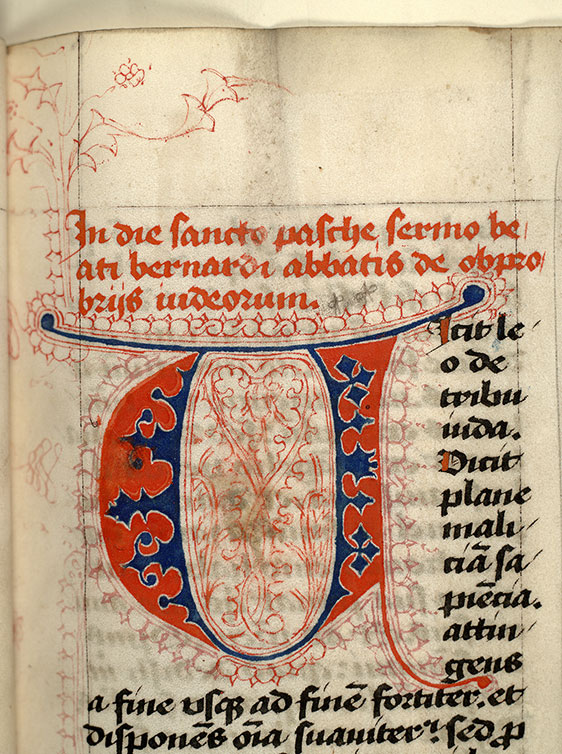 In die sancto pasche sermo be/
ati bernardi abbatis de obpro/
brijs iudeorum.
Vicit le/
o de
tribu
iuda.
Vicit
plane
mali/
ciā sa/
piēcia.
attin/
gens
a fine vsq ad finē fortiter. et
disponēs oīa suauiter. sed p